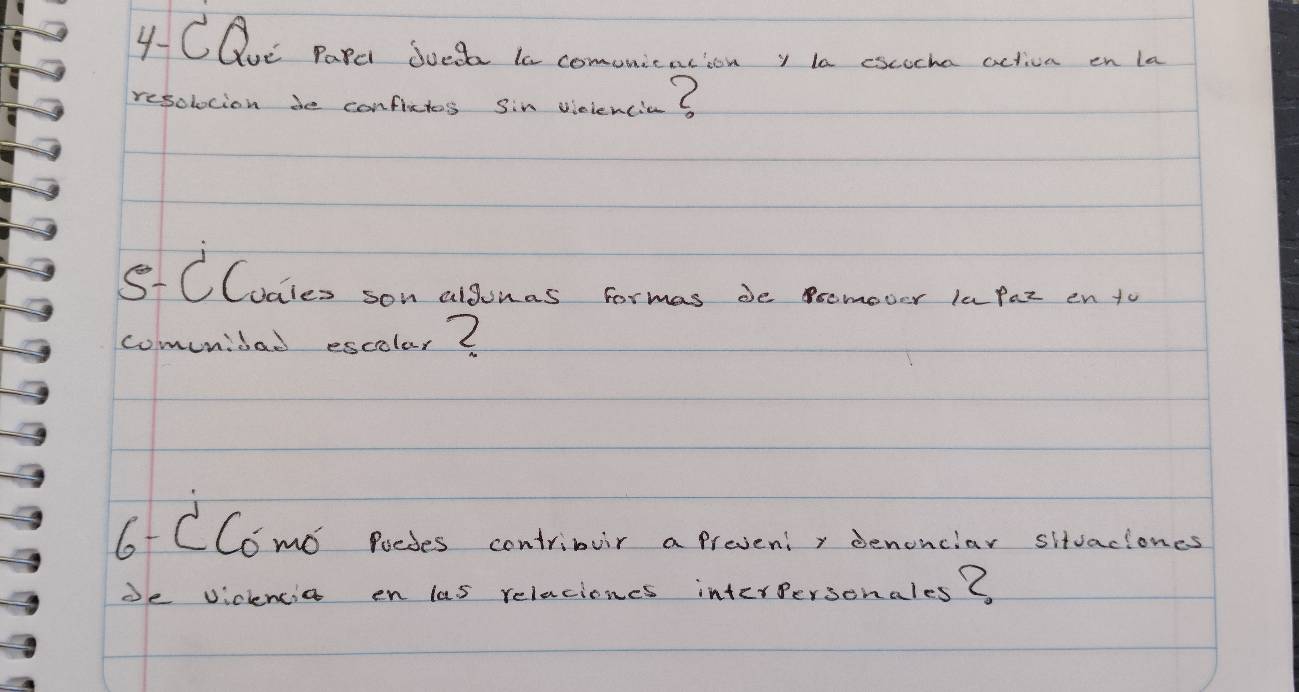 4-¿Qué Papel Jueda la comunicacion y la escucha activa en la
resolucion de conflictos sin violencia?
5-¿Cuáles son algunas formas de Promover la Paz en tu
comunidad escolar?
6-¿Cómó Puedes contribuir a Preveni y denunciar situaciones
de violencia en las relaciones interPersonales?